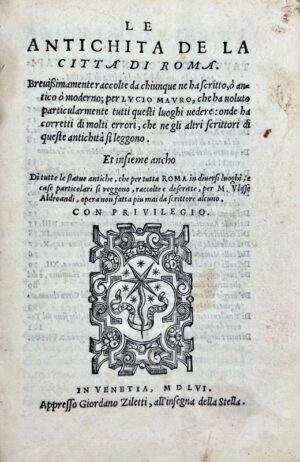 LE
ANTICHITA DE LA
CITTA DI ROMA.
Breuißimamente raccolte da chiunque ne ha scritto, ò an-
tico ò moderno; per LVCIO MAVRO, che ha uoluto
particularmente tutti questi luoghi uedere: onde ha
corretti di molti errori, che ne gli altri scrittori di
queste antichità si leggono.
Et insieme ancho
Di tutte le statue antiche, che per tutta ROMA in diuersi luoghi, e
case particolari si veggono, raccolte e descritte, per M. Vlisse
Aldroandi, opera non fatta piu mai da scrittore alcuno.
CON PRIVILEGIO.
IN VENETIA, M D LVI.
Appresso Giordano Ziletti, all'insegna della Stella.